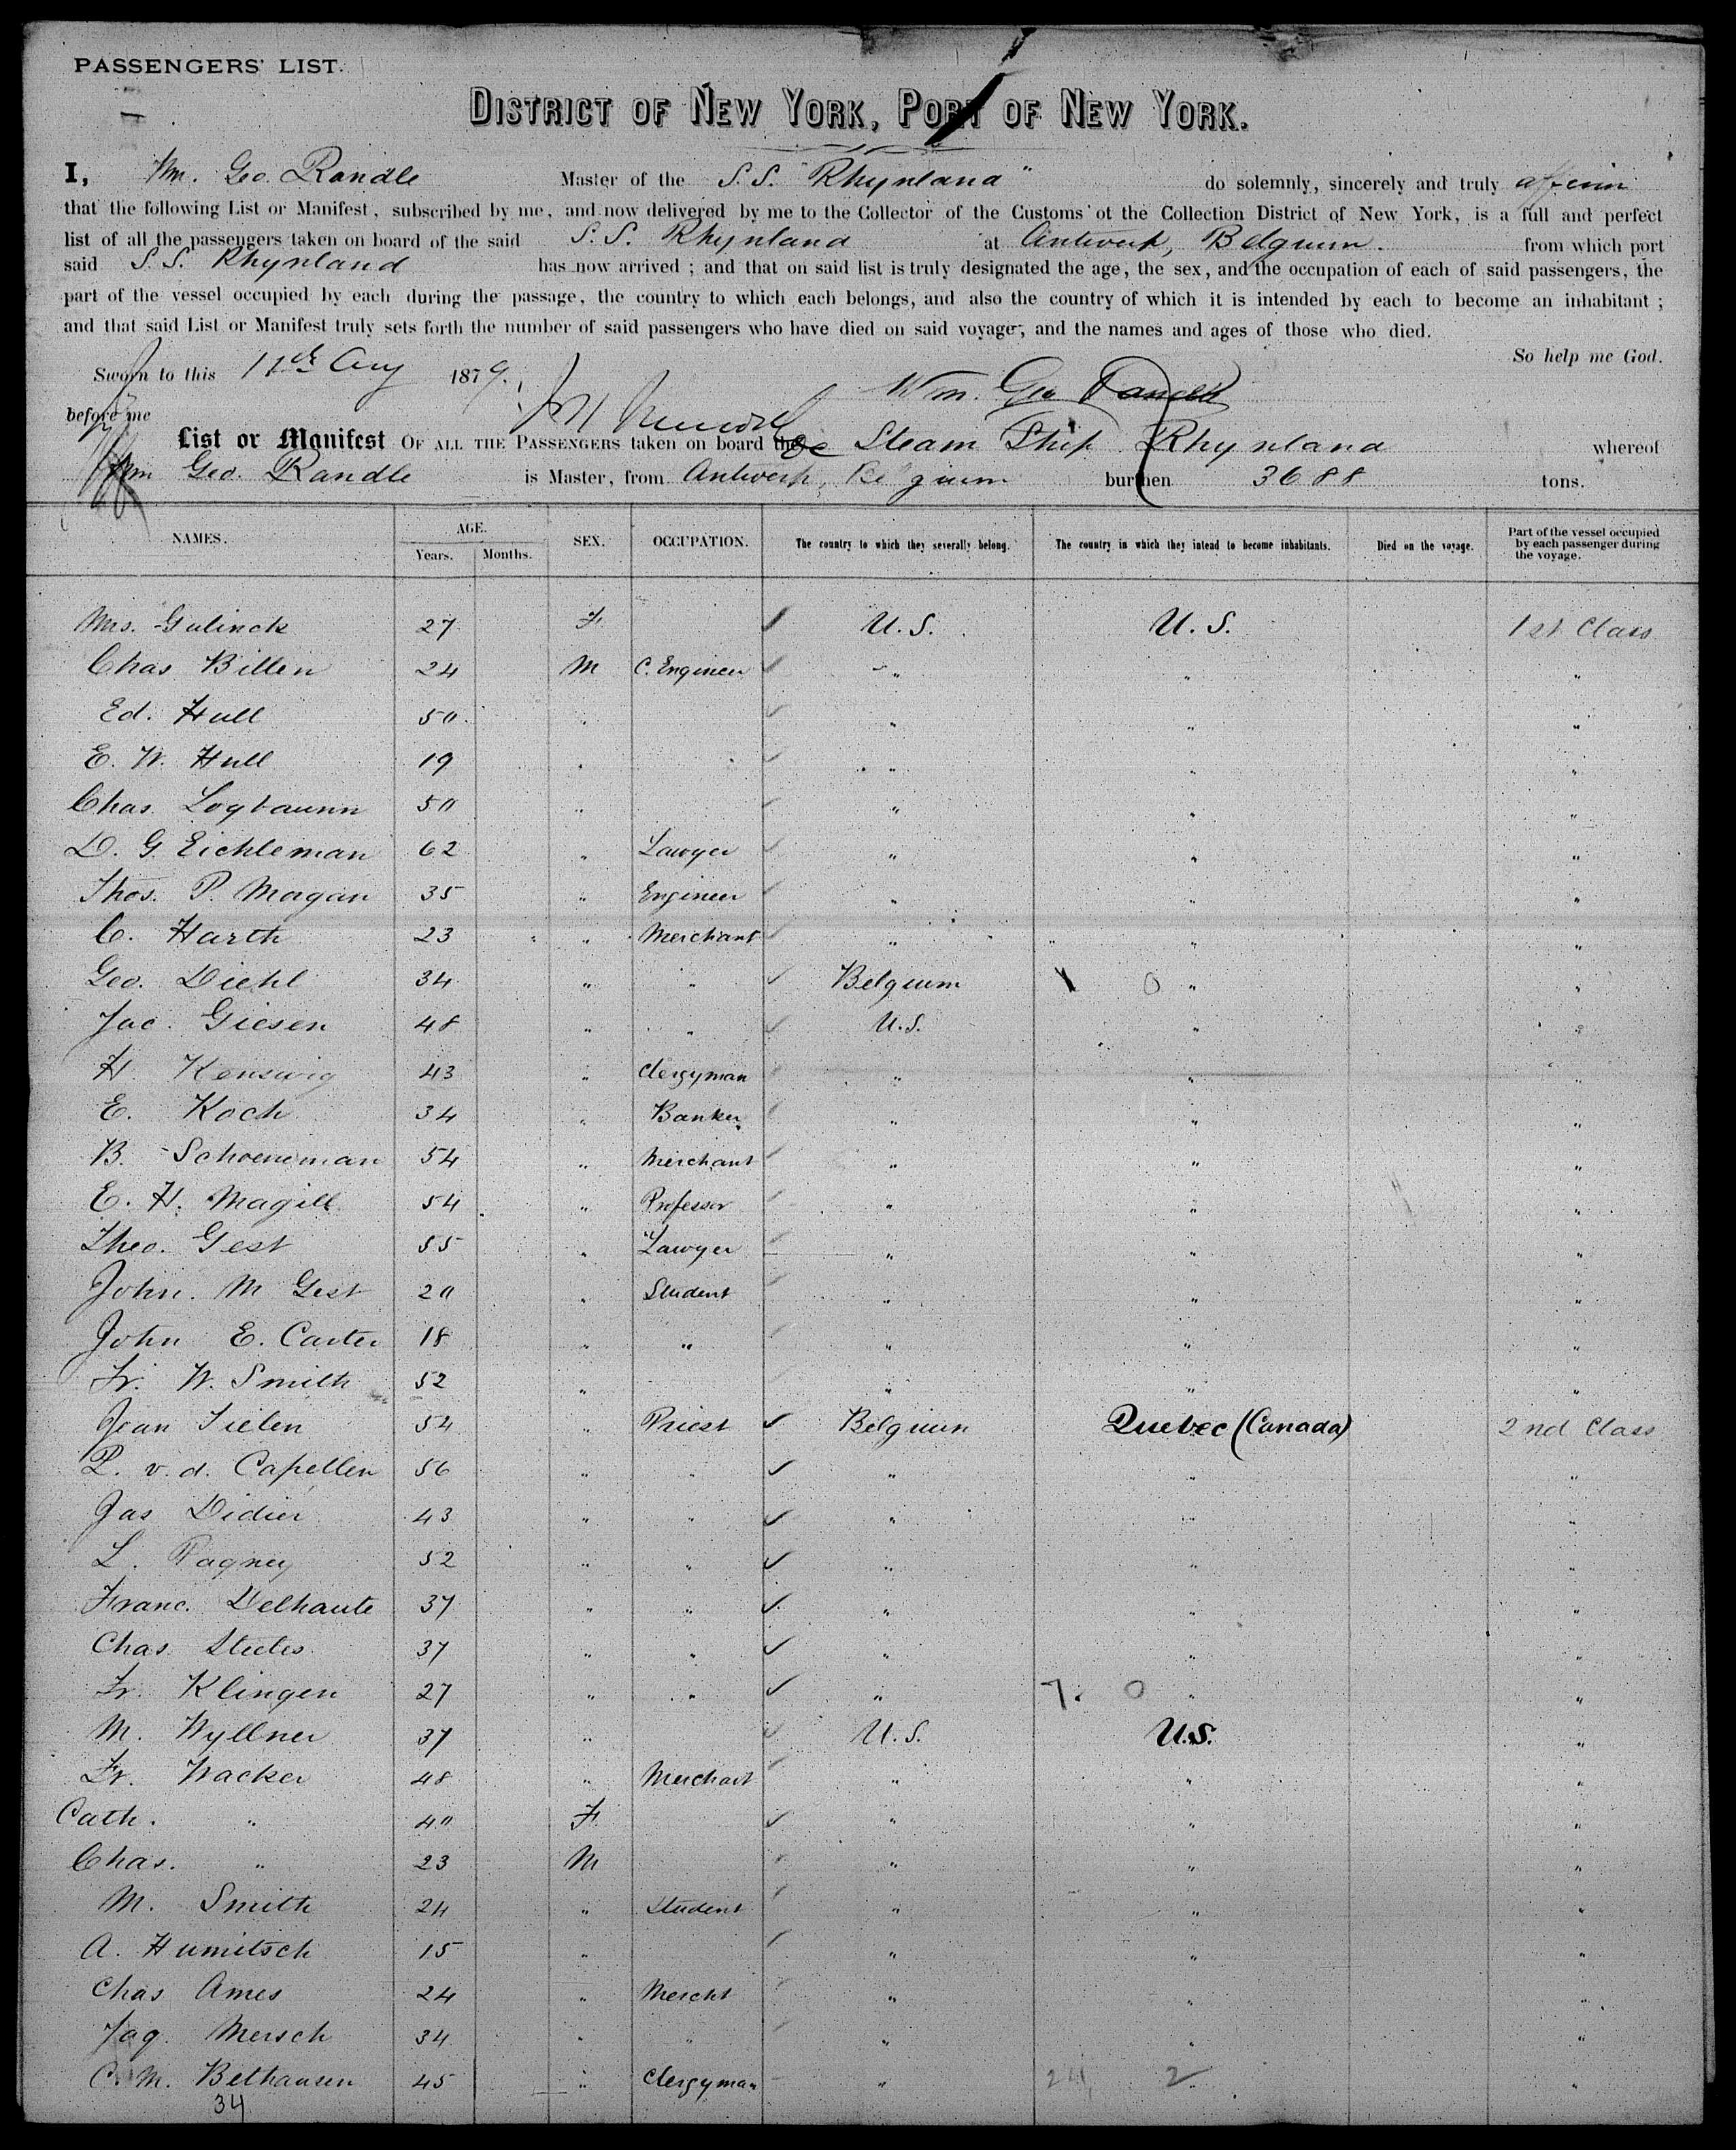 PASSENGERS' LIST.
DISTRICT OF NEW YORK, PORT OF NEW YORK.
I, Wm. Geo. Randle Master of the S.S. "Rhynland" do solemnly, sincerely and truly affirm
that the following List or Manifest, subscribed by me, and now delivered by me to the Collector of the Customs of the Collection District of New York, is a full and perfect
list of all the passengers taken on board of the said S.S. Rhynland at Antwerp, Belgium. from which port
said S.S. Rhynland has now arrived ; and that on said list is truly designated the age, the sex, and the occupation of each of said passengers, the
part of the vessel occupied by each during the passage, the country to which each belongs, and also the country of which it is intended by each to become an inhabitant ;
and that said List or Manifest truly sets forth the number of said passengers who have died on said voyage, and the names and ages of those who died.
So help me God.
Sworn to this Aug 1879.
Wm. Geo Randle
before me
List or Manifest OF ALL THE PASSENGERS taken on board the Steam Ship Rhynland whereof
Wm Geo. Randle is Master, from Antwerp, Belgium burthen 3688 tons.
NAMES. AGE. Years. Months. SEX. OCCUPATION. The country to which they severally belong. The country in which they intend to become inhabitants. Died on the voyage. Part of the vessel occupied by each passenger during the voyage.
Mrs. Gulinck 27 F U.S. U.S. 1st Class
Chas Billen 24 M C. Engineer " " "
Ed. Hull 50 " " " "
E. W. Hull 19 " " " "
Chas. 50 " " " "
D. G. Eichleman 62 " Lawyer " " "
Thos. P. Magan 35 " Engineer " " "
C. Harth 23 " Merchant " " "
Geo. Diehl 34 " " Belgium 0 " "
Jac. Giesen 48 " " U.S. " "
H. Kenswig 43 " Clergyman " " "
E. Koch 34 " Banker " " "
B. Schoeneman 54 " Merchant " " "
E. H. Magill 54 " Professor " " "
Theo. Gest 55 " Lawyer " " "
John. M Gest 20 " Student " " "
John E. Carter 18 " " " " "
Fr. W. Smith 52 " " " "
Jean Tielen 54 " Priest Belgium Quebec (Canada) 2nd Class
P. v. d. Capellen 56 " " " " "
Jas Didier 43 " " " " "
L. Pagney 52 " " " " "
Franc. Delhaute 37 " " " " "
Chas. 37 " " " " "
Fr. Klingen 27 " " " 7. 0 " "
M. Wyllner 37 " U.S. U.S. "
Fr. Wacker 48 " Merchant " " "
Cath. " 40 F " " "
Chas. " 23 M " " "
M. Smith 24 " Student " " "
A. Humitsch 15 " " " "
Chas Ames 24 " Mercht " " "
Jaq. Mersch 34 " " " " "
C. M. Belhausen 45 " Clergyman " 24, 2 " "
34